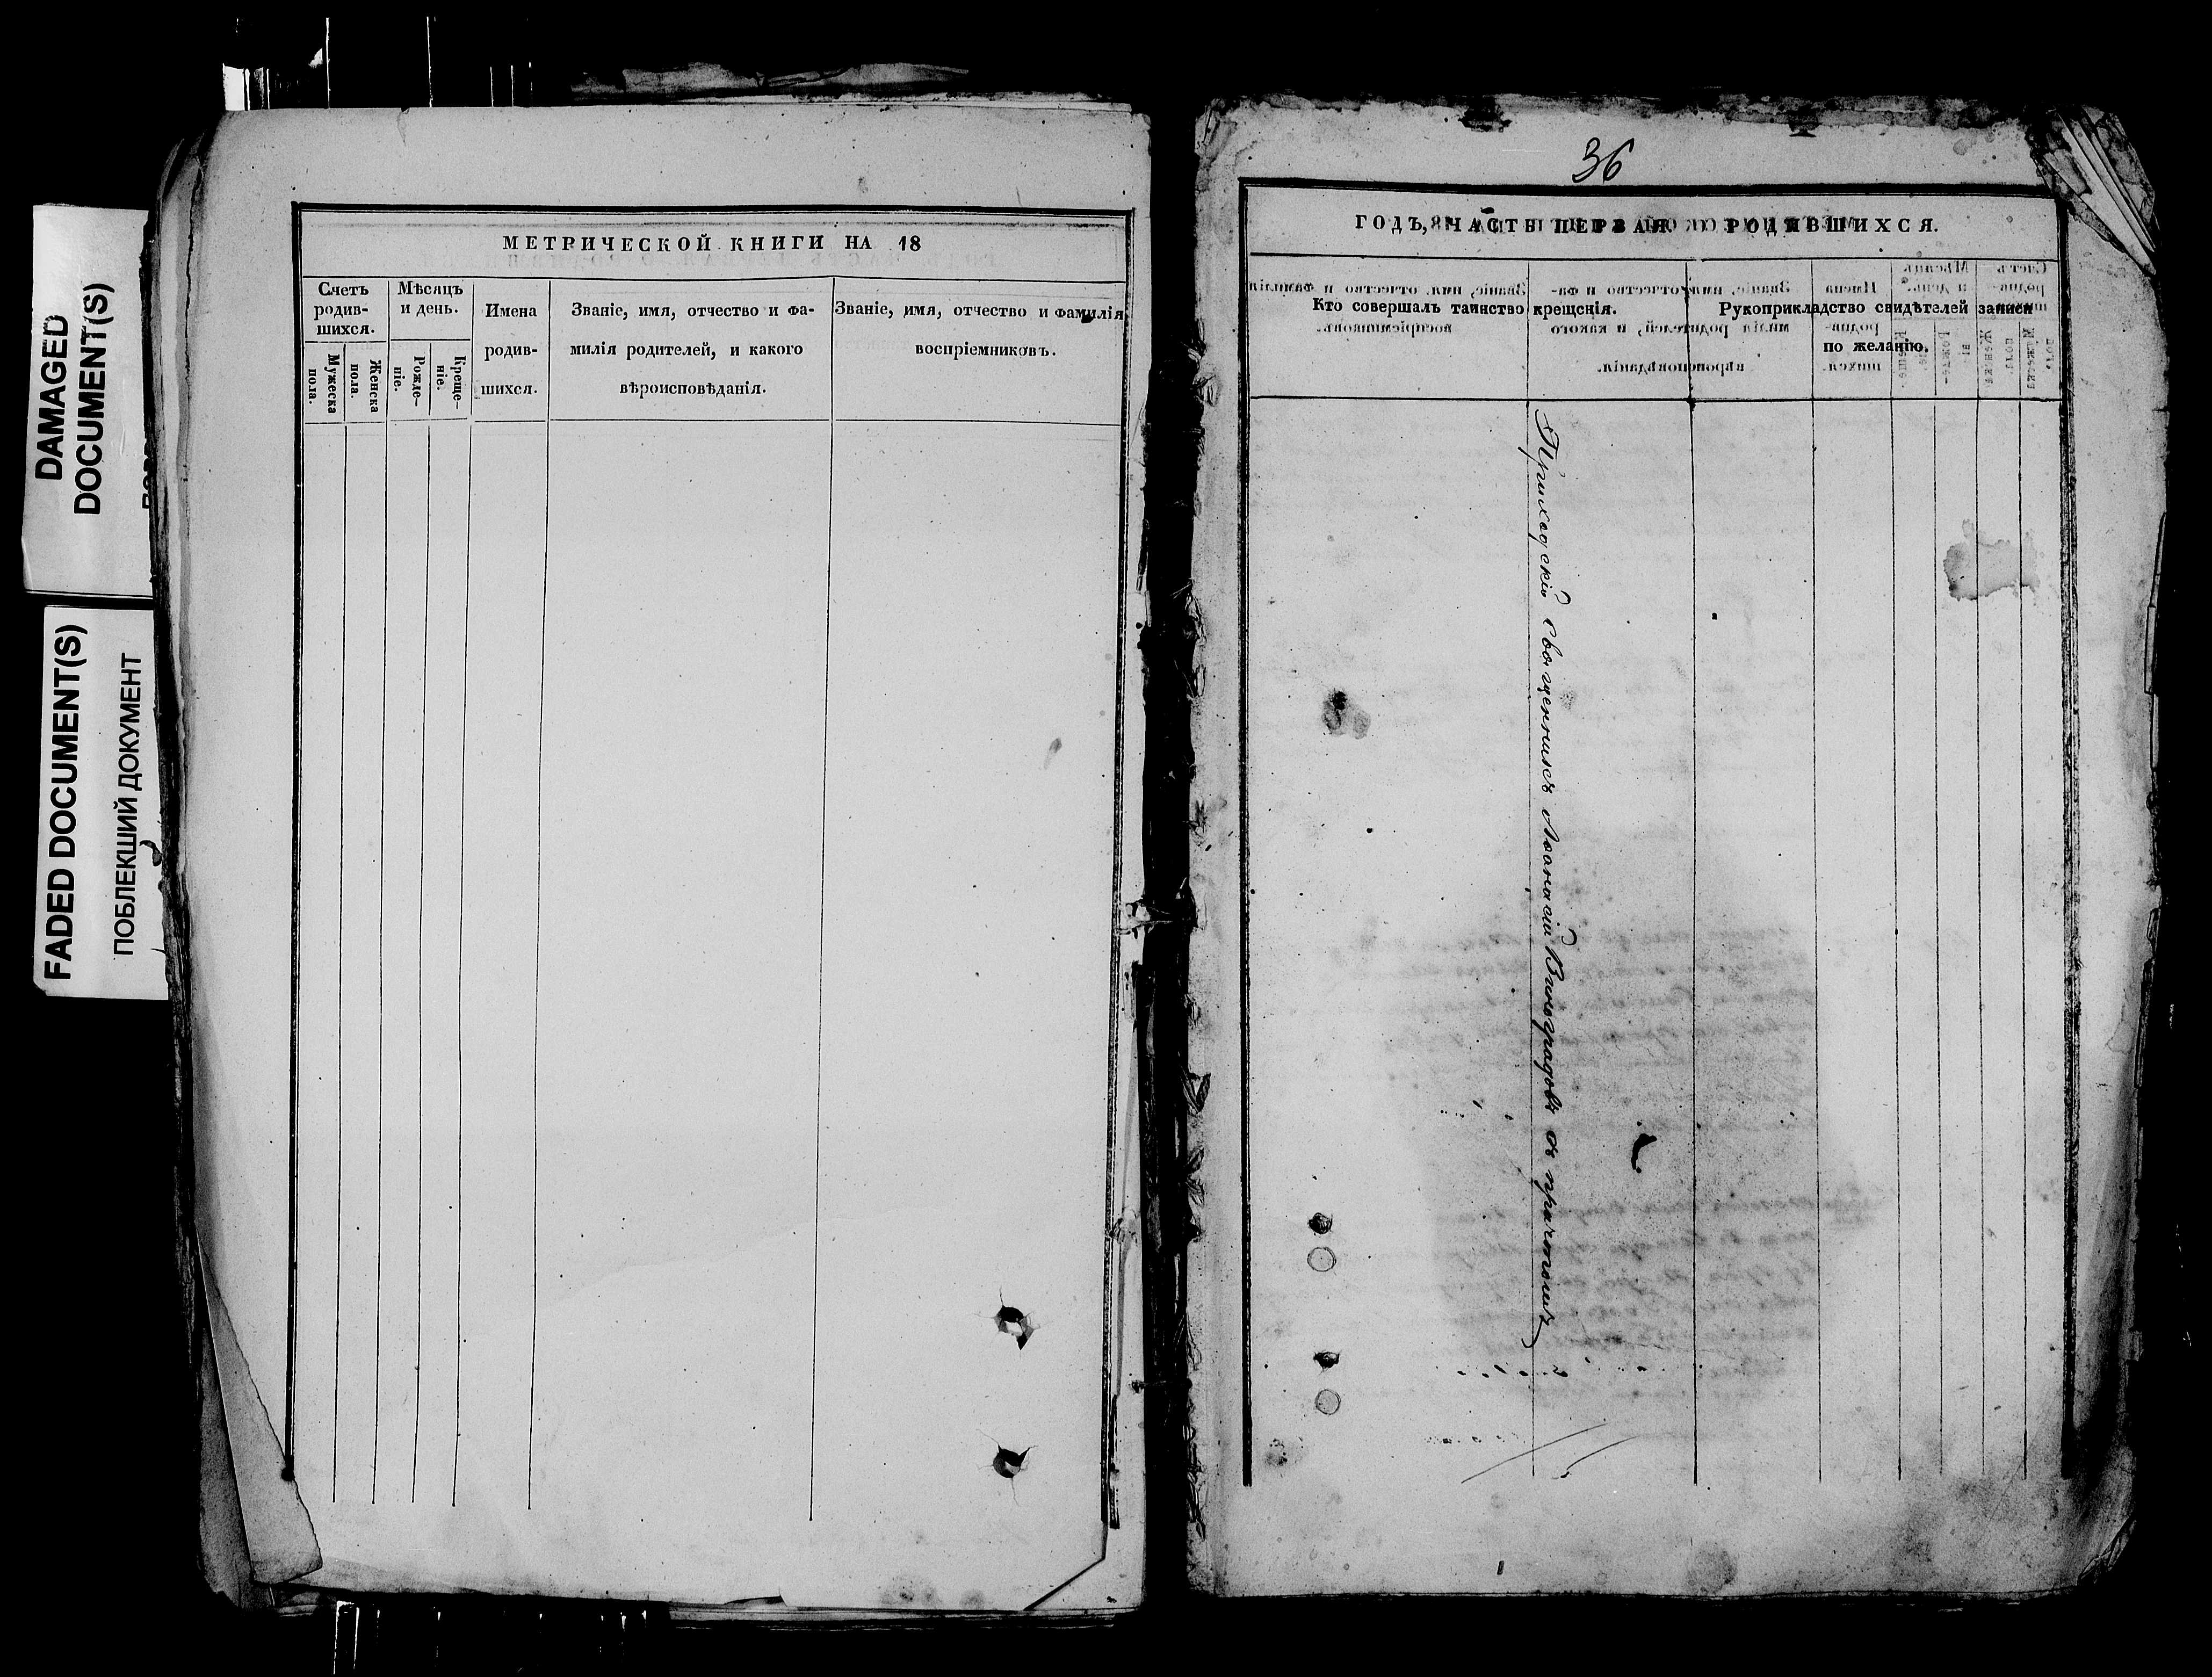 DAMAGED
DOCUMENT(S)
FADED DOCUMENT(S)
ПОБЛЕКШИЙ ДОКУМЕНТ
МЕТРИЧЕСКОЙ КНИГИ НА 18
Счетъ родив-
шихся.
Мужеска
пола.
Женска
пола.
Мѣсяцъ
и день.
Рожде-
ніе.
Креще-
ніе.
Имена
родив-
шихся.
Званіе, имя, отчество и фа-
милія родителей, и какого
вѣроисповѣданія.
Званіе, имя, отчество и фамилія
воспріемниковъ.
36
ГОДЪ, ЧАСТЬ ПЕРВАЯ О РОДИВШИХСЯ.
Кто совершалъ таинство крещенія.
Рукоприкладство свидѣтелей записи
по желанію.
Приходскій Священникъ Аѳанасій Виноградовъ съ причтомъ